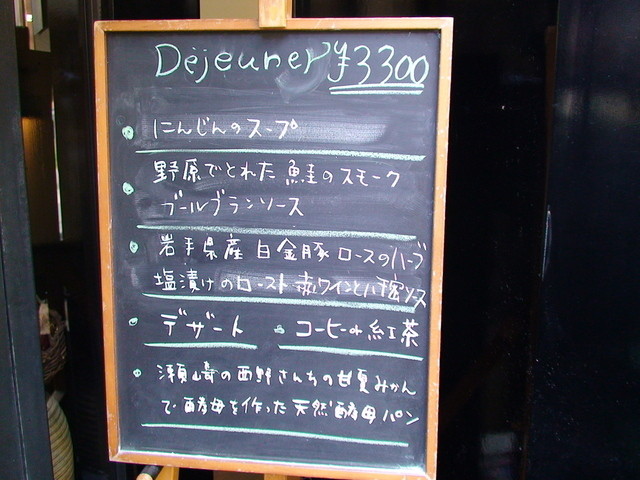 Déjeuner ¥3300
にんじんのスープ
野原でとれた 鮭のスモーク
ブールブランソース
岩手県産 白金豚 ロースのハーブ
塩漬けのロースト 赤ワインとハチ蜜ソース
デザート コーヒーor紅茶
瀬崎の西野さんちの甘夏みかん
で酵母を作った天然酵母パン